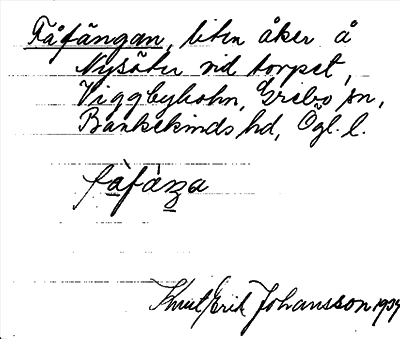 Fåfängan, liten åker å
Nysäter vid torpet,
Viggbyholm, Grebo sn,
Bankekinds hd, Ögl. l.
Knut Erik Johansson